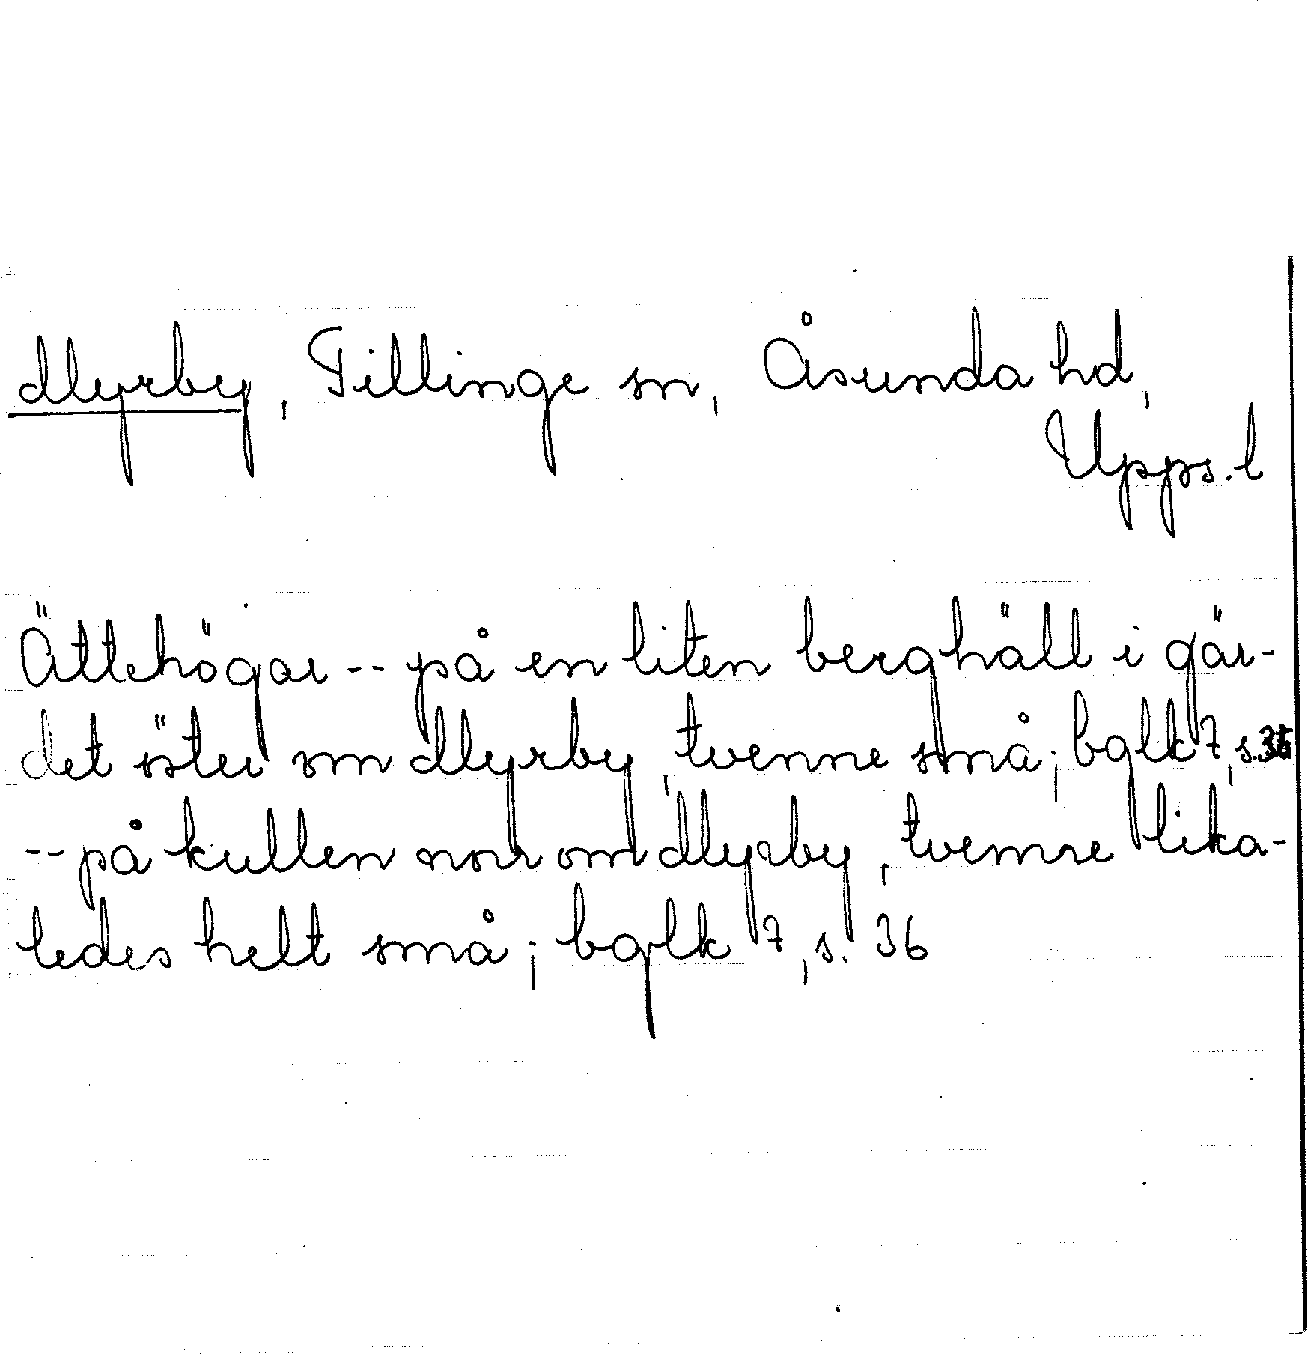 dlyrby, Tillinge sn, Åsunda hd,
Upps. l
Ättehögar -- på en liten berghäll i gär-
det öster om dlyrby, tvenne små; bglk 7, s. 36
-- på kullen norr om dlyrby, tvenne lika-
ledes helt små; bglk 7, s. 36